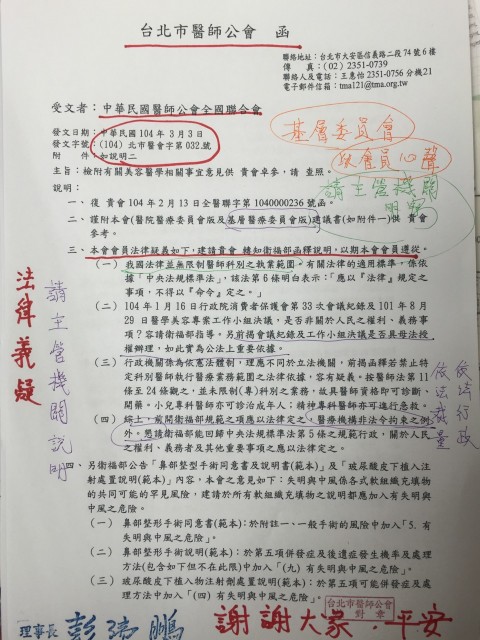 台北市醫師公會 函
聯絡地址：台北市大安區信義路二段74號6樓
傳真：(02) 2351-0739
聯絡人及電話：王惠怡2351-0756 分機21
電子郵件信箱：tma121@tma.org.tw
受文者：中華民國醫師公會全國聯合會
發文日期：中華民國104年3月3日
發文字號：(104) 北市醫會字第032號
附件：如說明二
基層委員會
依會員心聲
請主管機關
明察
主旨：檢附有關美容醫學相關事宜意見供 貴會卓參，請 查照。
說明：
一、復 貴會104年2月13日全醫聯字第1040000236號函。
二、謹附本會(醫院醫療委員會版及基層醫療委員會版)建議書(如附件一)供 貴會
參考。
三、本會會員法律疑義如下，建請貴會 轉知衛福部函釋說明，以期本會會員遵從。
(一) 我國法律並無限制醫師科別之執業範圍。有關法律的適用標準，係依
據「中央法規標準法」，該法第6條明白表示：「應以『法律』規定之
事項，不得以『命令』定之。」
(二) 104年1月16日行政院消費者保護會第33次會議紀錄及101年8月
29日醫學美容專案工作小組決議，是否非關於人民之權利、義務事
項？容請衛福部指導。另前揭會議紀錄及工作小組決議是否具母法授
權辦理，如此實為公法上重要依據。
(三) 行政機關譽為依憲法體制，理應不同於立法機關，前揭函釋若禁止特
定科別醫師執行醫療業務範圍之法律依據，容有疑義。按醫師法第11
條至24條觀之，並未限制(專)科別之業務，故具醫師資格即可診斷、
開藥。小兒專科醫師亦可診治成年人；精神專科醫師亦可進行急救。
(四) 綜上，前開衛福部規範之事項應以法律定之，醫療機構非法令拘束之例
外。懇請衛福部能回歸中央法規標準法第5條之規範行政，關於人民
之權利、義務者及其他重要事項之應以法律定之。
四、另衛福部公告「鼻部整型手術同意書及說明書(範本)」及「玻尿酸皮下植入注
射處置說明(範本)」內容，本會之意見如下：失明與中風係各式軟組織充填物
的共同可能的罕見風險，建請於所有軟組織充填物之說明都應加入有失明與
中風之危險。
(一) 鼻部整形手術同意書(範本)：於附註一、一般手術的風險中加入「5. 有
失明與中風之危險」。
(二) 鼻部整形手術說明(範本)：於第五項併發症及後遺症發生機率及處理
方法(包含如下但不在此限)中加入「(九) 有失明與中風之危險」。
(三) 玻尿酸皮下植入物注射劑處置說明(範本)：於第五項可能併發症及處
理方法中加入「(四) 有失明與中風之危險」。
法律義疑
請主管機關說明
依法行政
依法裁量
台北市醫師公會
對章
理事長
謝謝大家，平安